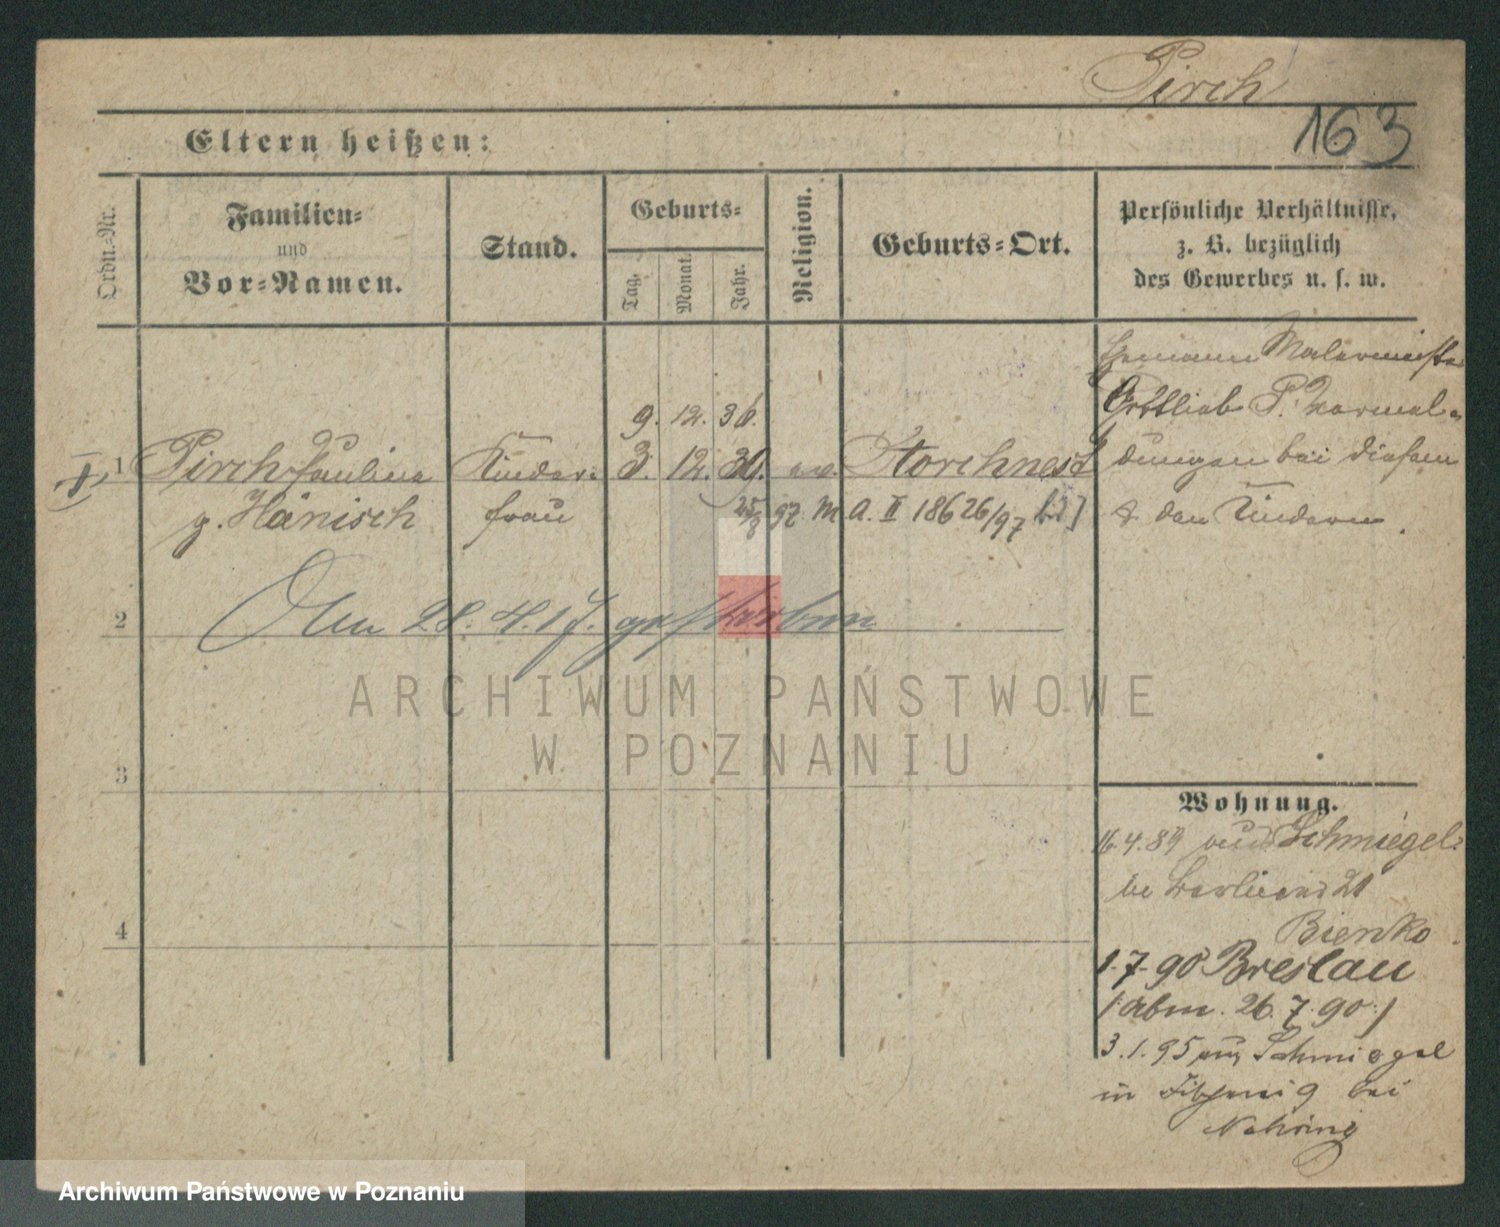 Pirch
163
Eltern heißen:
Ordn.-Nr.
Familien-
und
Vor-Namen.
Stand.
Geburts-
Tag.
Monat.
Jahr.
Religion.
Geburts-Ort.
Persönliche Verhältnisse,
z. B. bezüglich
des Gewerbes u. s. w.
Ehemann Malermeister
Gottlieb P. Vormel-
dungen bei diesem
& den Kindern.
9. 12. 36.
1 Pirch Pauline Kinder- 3. 12. 30. ev. Storchnest
g. Hänisch frau 25/8 97. M. A. II 18626/97
2
Am 28. 4. 17. gestorben
3
4
ARCHIWUM PAŃSTWOWE
W POZNANIU
Wohnung.
16.4.89 aus Schmiegel
21
Bienko
1.7.90 Breslau
/:abm. 26.7.90:/
3.1.95 aus Schmiegel
in bei
Nehring
Archiwum Państwowe w Poznaniu